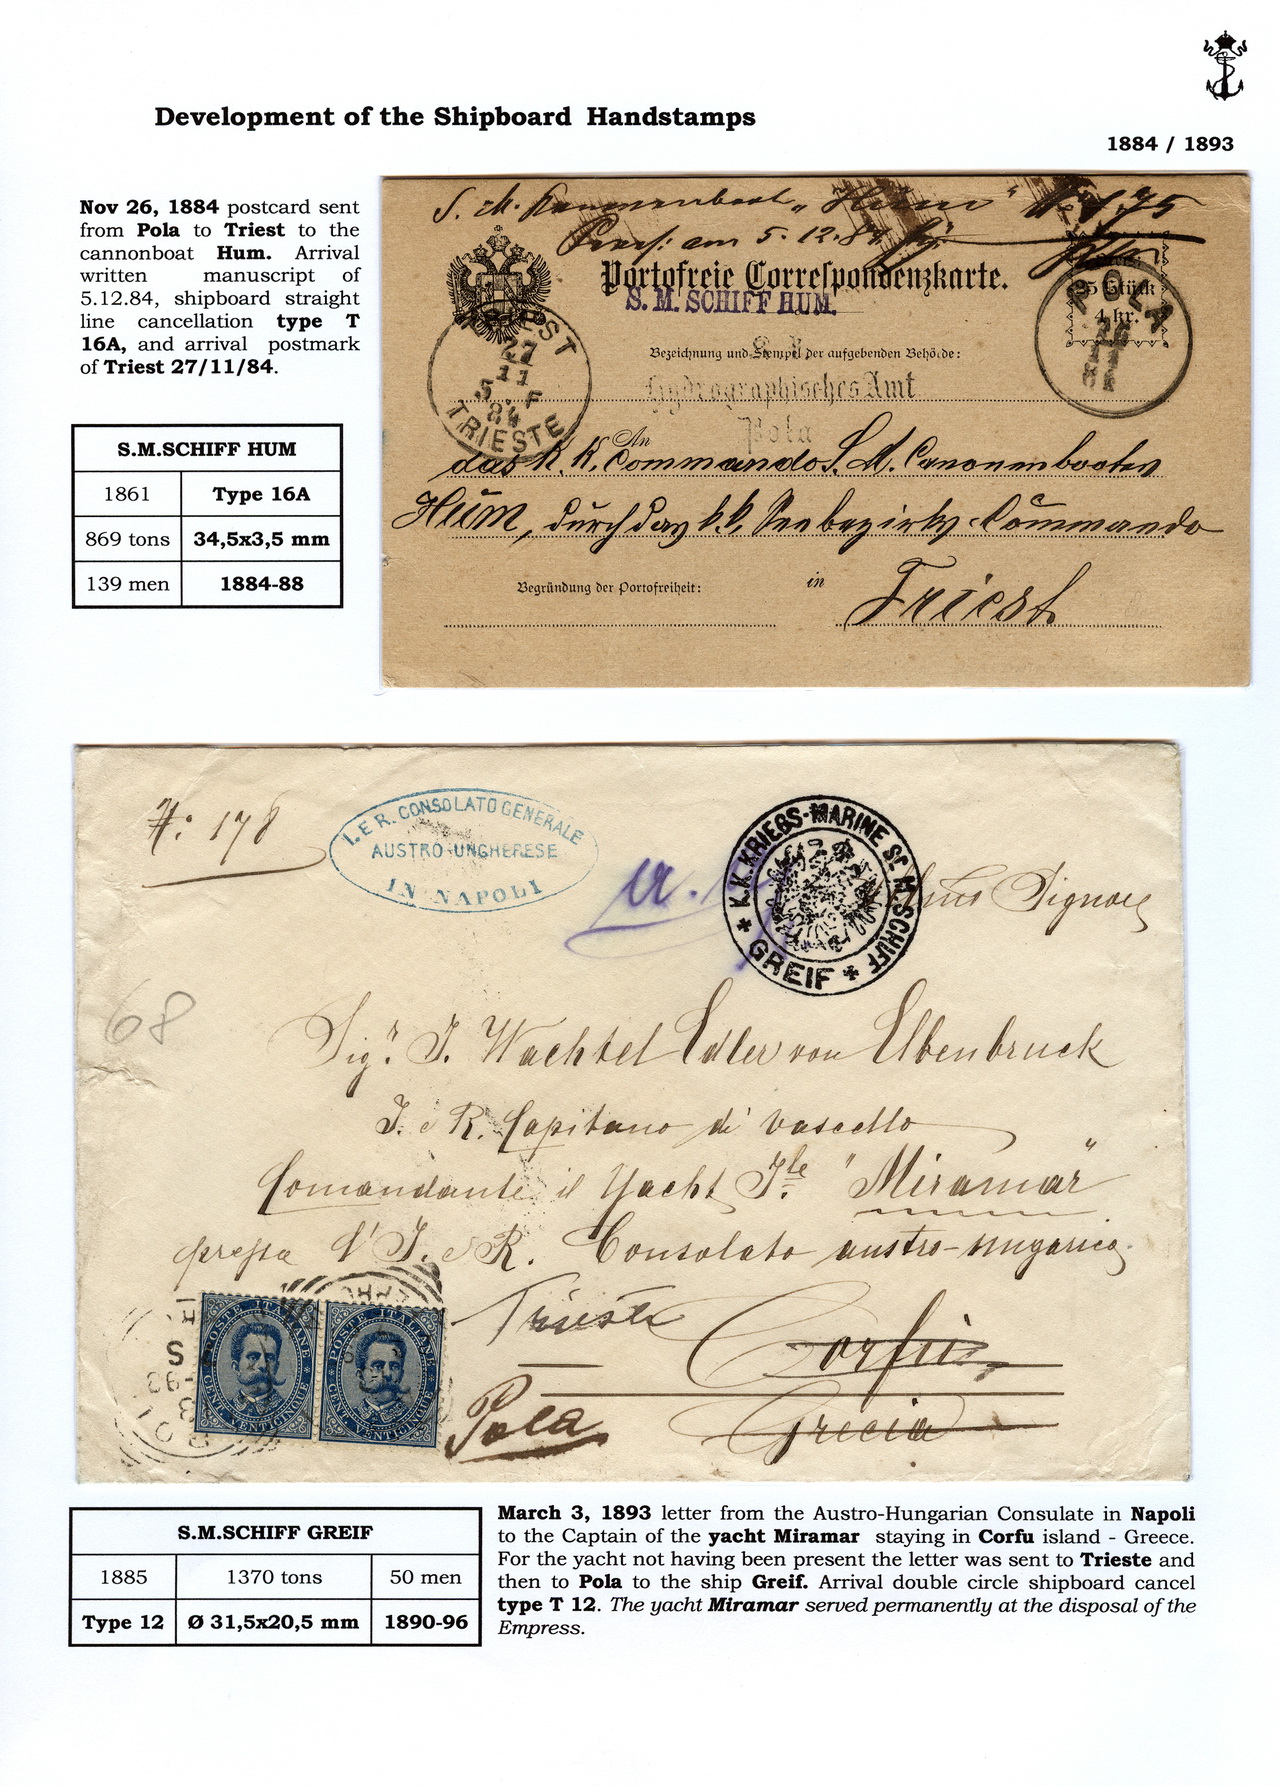 Development of the Shipboard Handstamps
1884 / 1893
Nov 26, 1884 postcard sent
from Pola to Triest to the
cannonboat Hum. Arrival
written manuscript of
5.12.84, shipboard straight
line cancellation type T
16A, and arrival postmark
of Triest 27/11/84.
S.M.SCHIFF HUM
1861 Type 16A
869 tons 34,5x3,5 mm
139 men 1884-88
S. M. Kanonenboot „Hum"
am 5.12.84
Portofreie Correspondenzkarte.
S. M. SCHIFF HUM.
25 Stück
4 kr.
POLA
26
11
84
TRIEST
27
11
5 F
84
TRIESTE
Bezeichnung und Stempel der aufgebenden Behörde:
Hydrographisches Amt
Pola
An
das K. K. Commando S. M. Canonenbootes
Hum, durch das k. k. Seebezirks-Commando
Begründung der Portofreiheit:
in Triest
No: 178
I. E R. CONSOLATO GENERALE
AUSTRO-UNGHERESE
IN NAPOLI
K. K. KRIEGS-MARINE Sr. M. SCHIFF
* GREIF *
Signore
68
Sigr. J. Wachtel Edler von Elbenbruck
I. e R. Capitano di vascello
Comandante il Yacht Ile "Miramar"
presso l'I. e R. Consolato austro-ungarico
Trieste Corfù
Pola Grecia
POSTE ITALIANE
CENT. VENTICINQUE
POSTE ITALIANE
CENT. VENTICINQUE
S.M.SCHIFF GREIF
1885 1370 tons 50 men
Type 12 Ø 31,5x20,5 mm 1890-96
March 3, 1893 letter from the Austro-Hungarian Consulate in Napoli
to the Captain of the yacht Miramar staying in Corfu island - Greece.
For the yacht not having been present the letter was sent to Trieste and
then to Pola to the ship Greif. Arrival double circle shipboard cancel
type T 12. The yacht Miramar served permanently at the disposal of the
Empress.